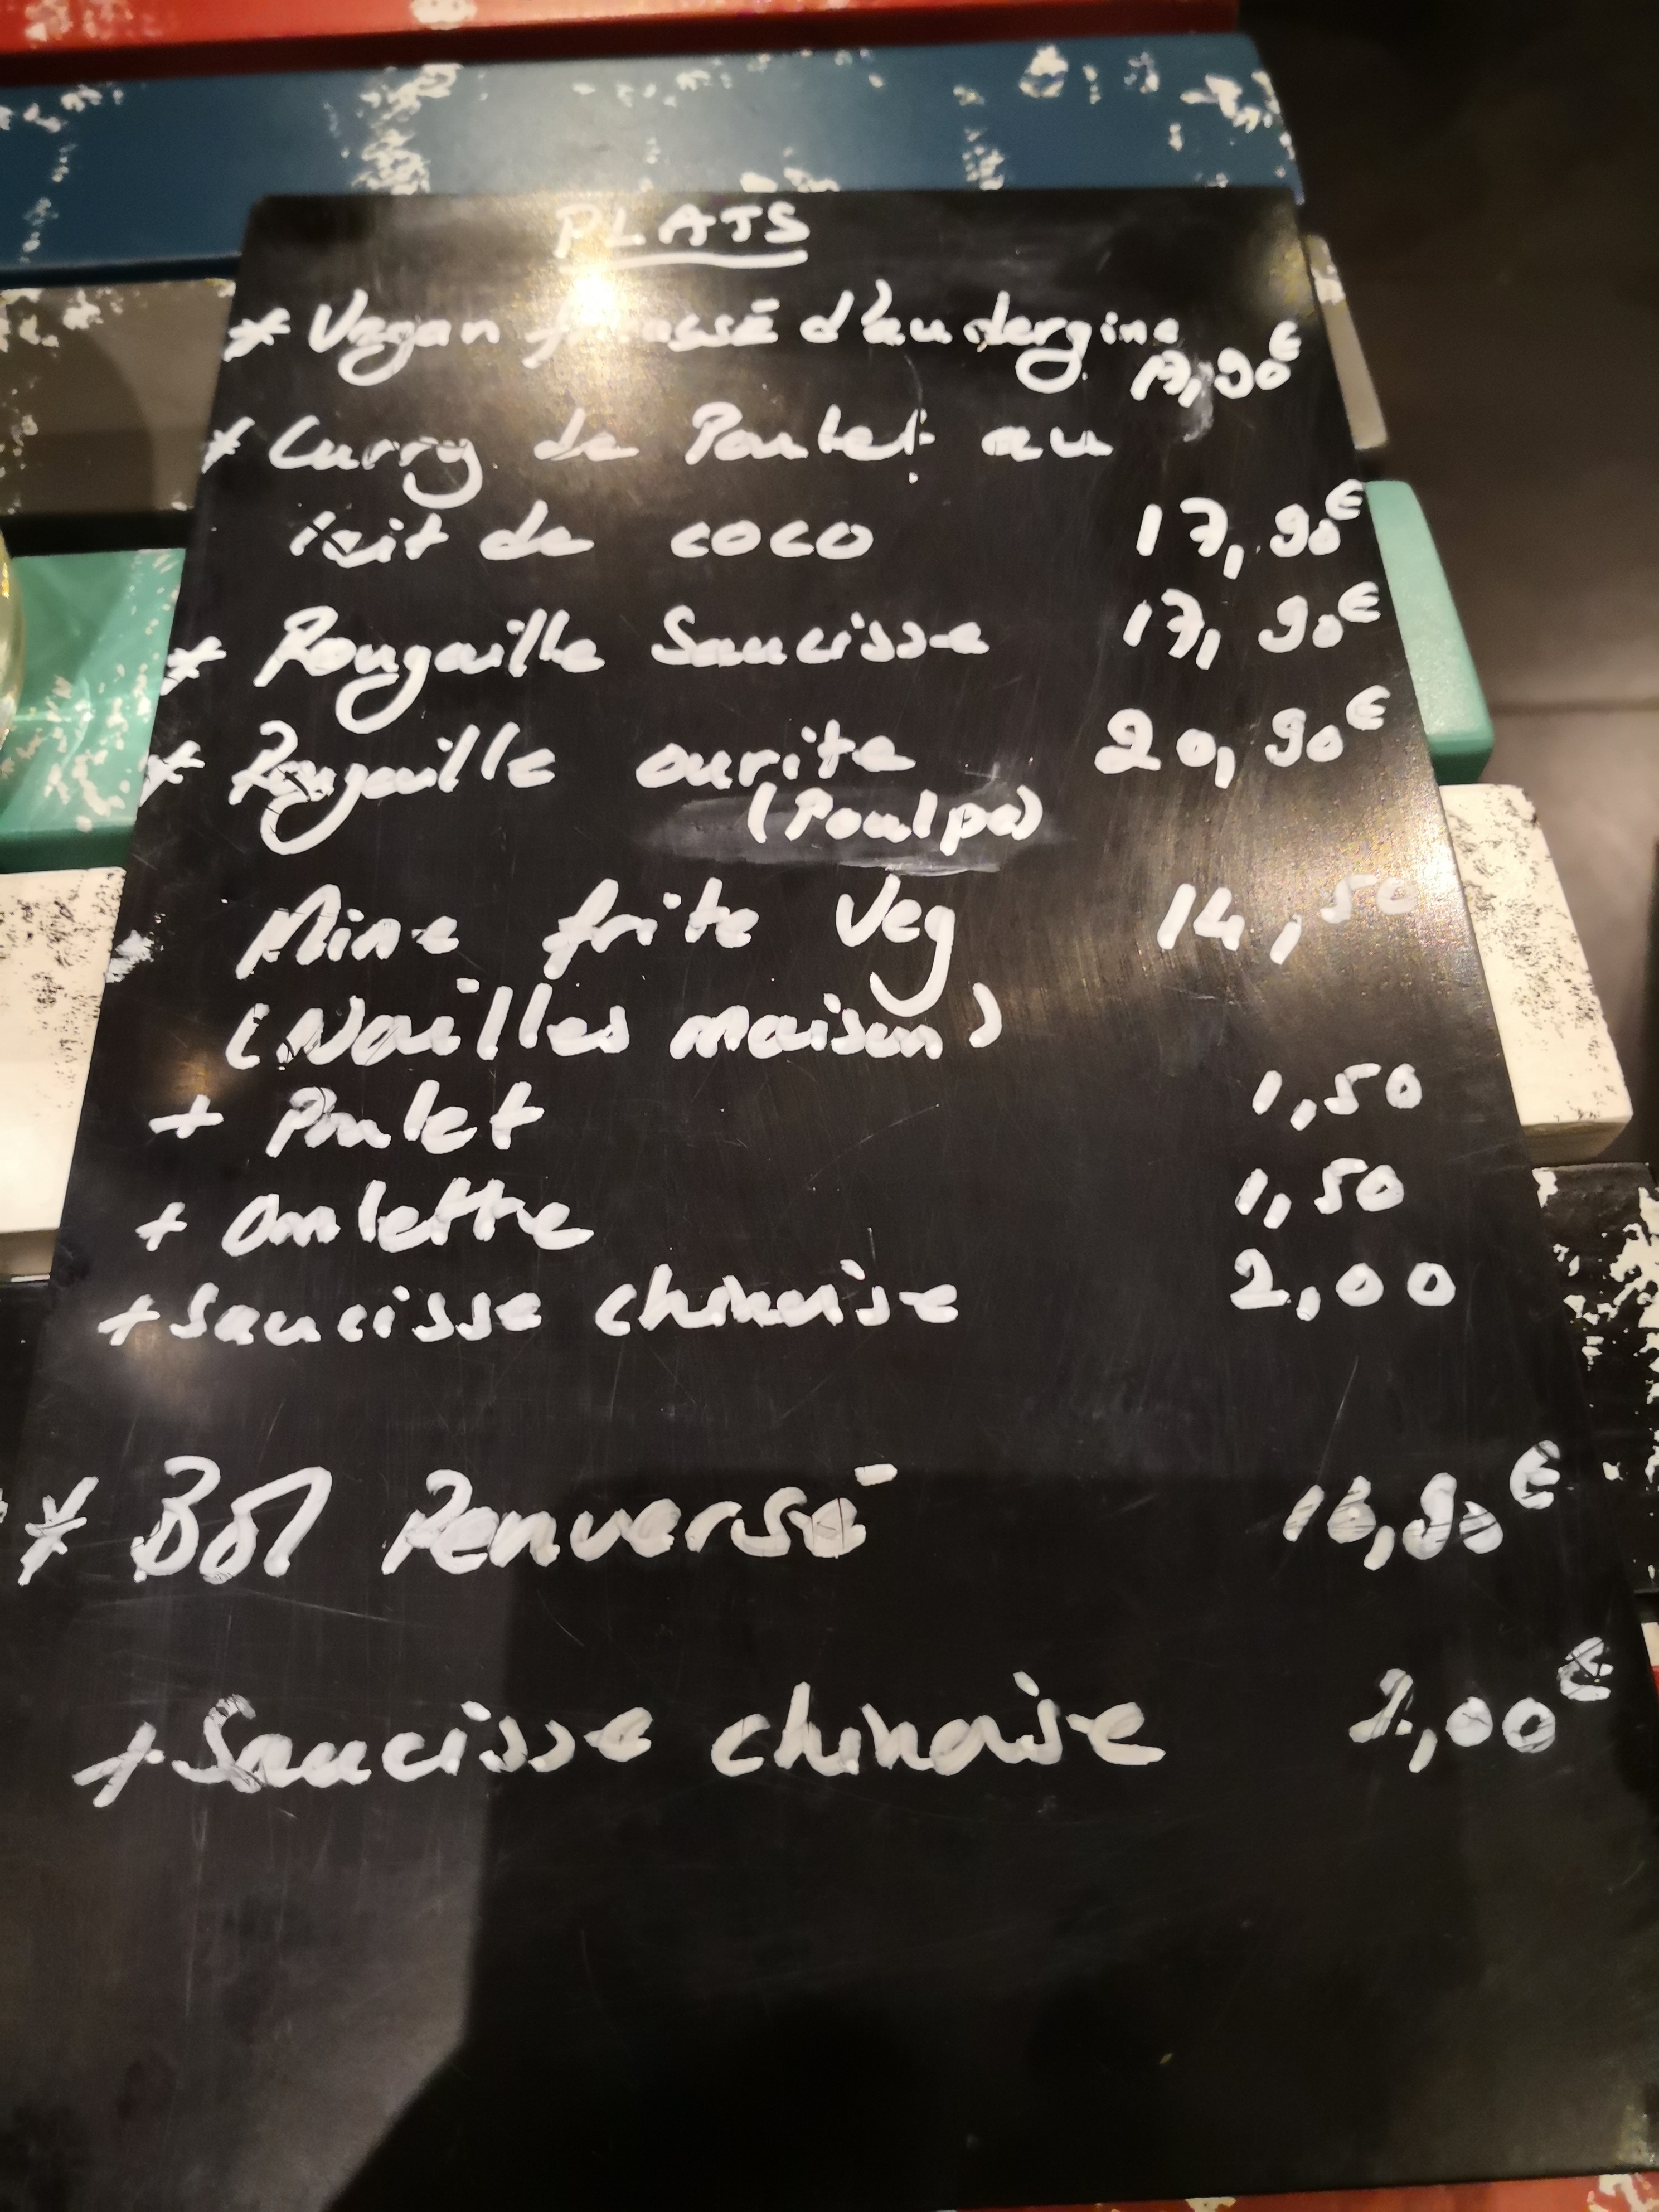 PLATS
* Vegan d'aubergine
,90€
* Curry de Poulet au
lait de coco 17,90€
* Rougaille Saucisse 17,90€
* Rougaille ourite 20,90€
(Poulpe)
Mine frite Veg 14,50
(Nouilles maison)
+ Poulet 1,50
+ Omlette 1,50
+ Saucisse chinoise 2,00
* Bol Renversé 16,90€
+ Saucisse chinoise 2,00€